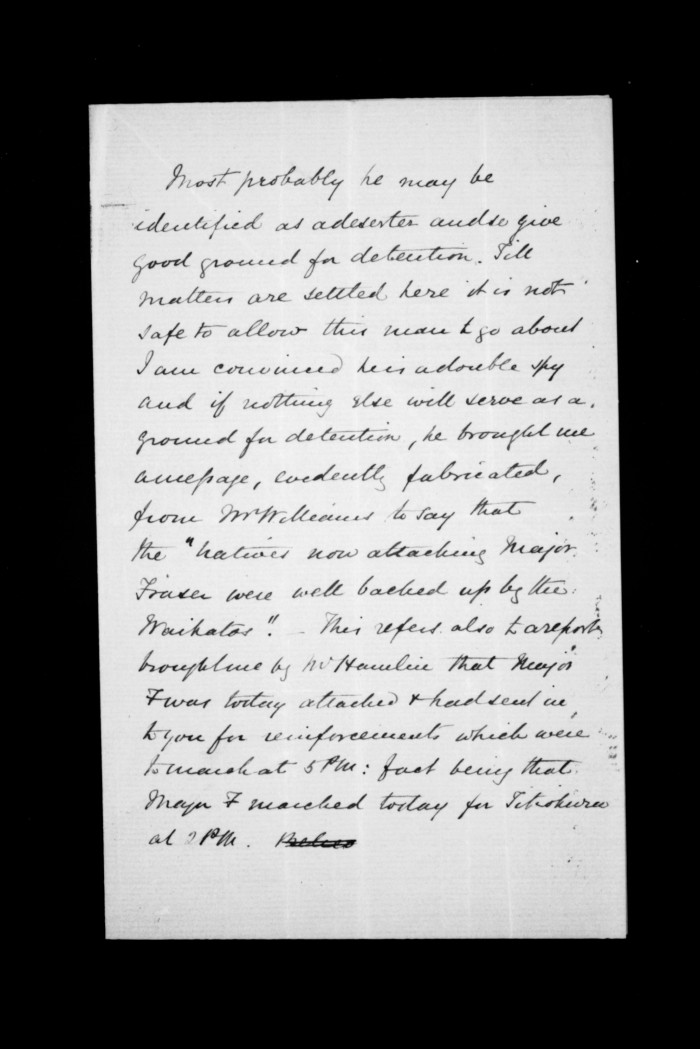 Most probably he may be
identified as a deserter and so give
good ground for detention. Till
matters are settled here it is not
safe to allow this man to go about
I am convinced he is a double spy
and if nothing else will serve as a
ground for detention, he brought me
a message, evidently fabricated,
from Mr Williams to say that
the "natives now attacking Major
Fraser were well backed up by the
Waikatos". - This refers also to a report
brought me by Mr Hamlin that Major
F was today attacked & had sent in
to you for reinforcements which were
to march at 5 PM: fact being that
Major F marched today for Titiokura
at 2 PM.